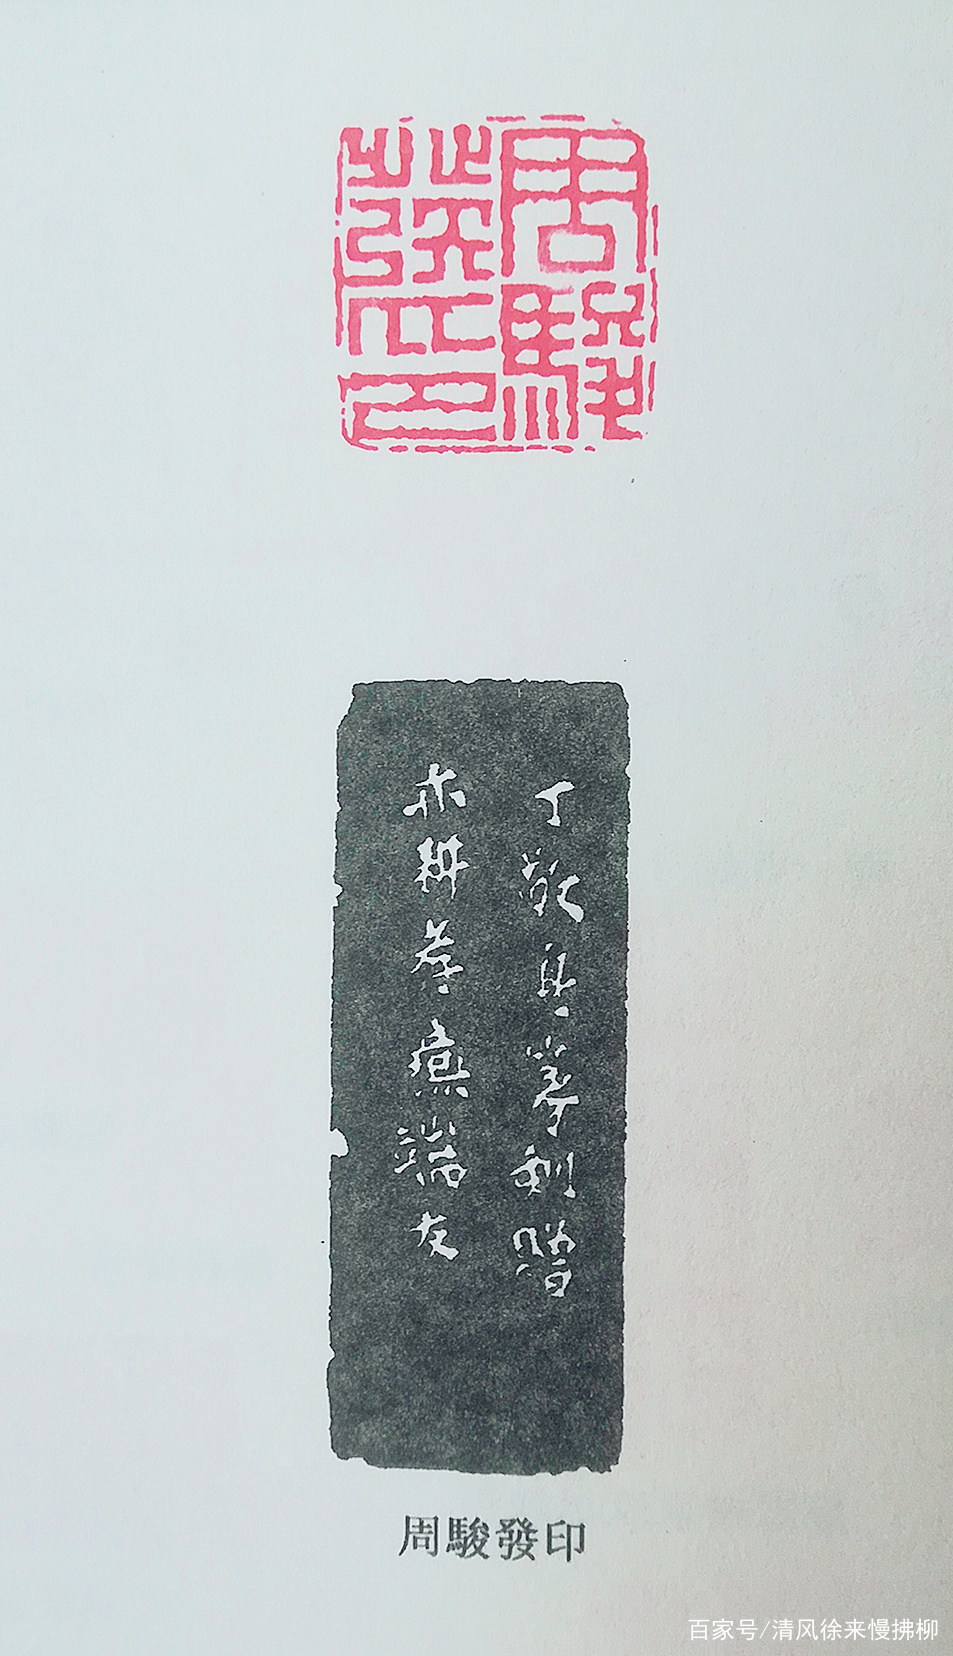 周駿
發印
丁敬篆刻贈
亦耕孝廉端友
周駿發印
百家号/清风徐来慢拂柳